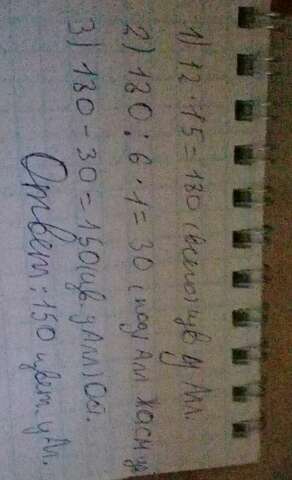 1) 12 · 15 = 180 (всего) цв у Ам.
2) 180 : 6 · 1 = 30 (под Ам
3) 180 - 30 = 150 (цв у Ам) ост.
Ответ: 150 цвет у Ам.